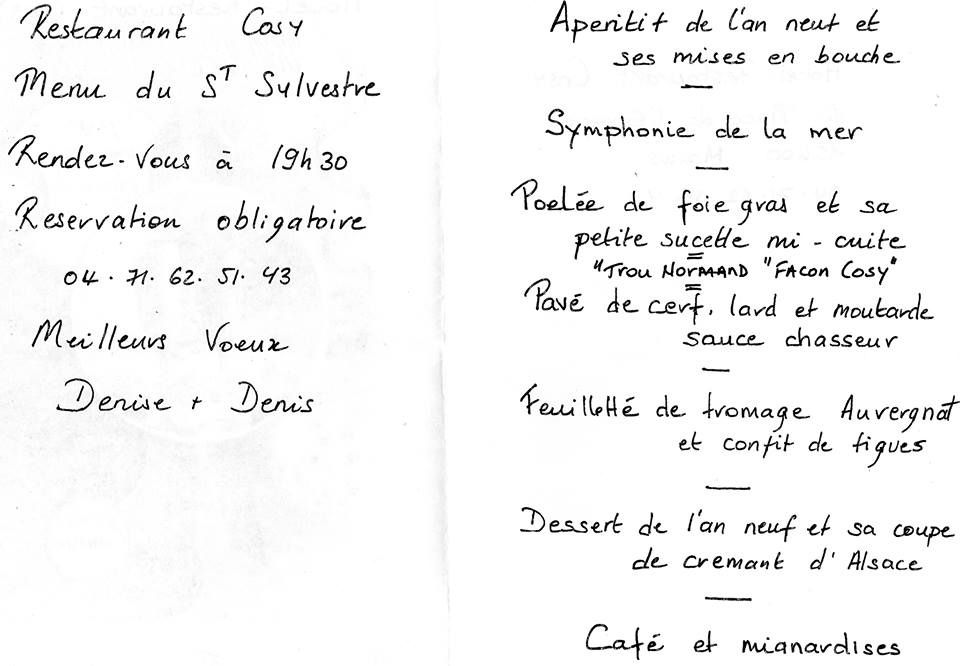 Restaurant Cosy
Menu du St Sylvestre
Rendez-Vous à 19h30
Reservation obligatoire
04.71.62.51.43
Meilleurs Voeux
Denise + Denis
Aperitif de l'an neuf et
ses mises en bouche
Symphonie de la mer
Poelée de foie gras et sa
petite sucette mi-cuite
"Trou NORMAND "FACON COSY"
Pavé de cerf, lard et moutarde
sauce chasseur
Feuilletté de fromage Auvergnat
et confit de figues
Dessert de l'an neuf et sa coupe
de cremant d'Alsace
Café et mianardises